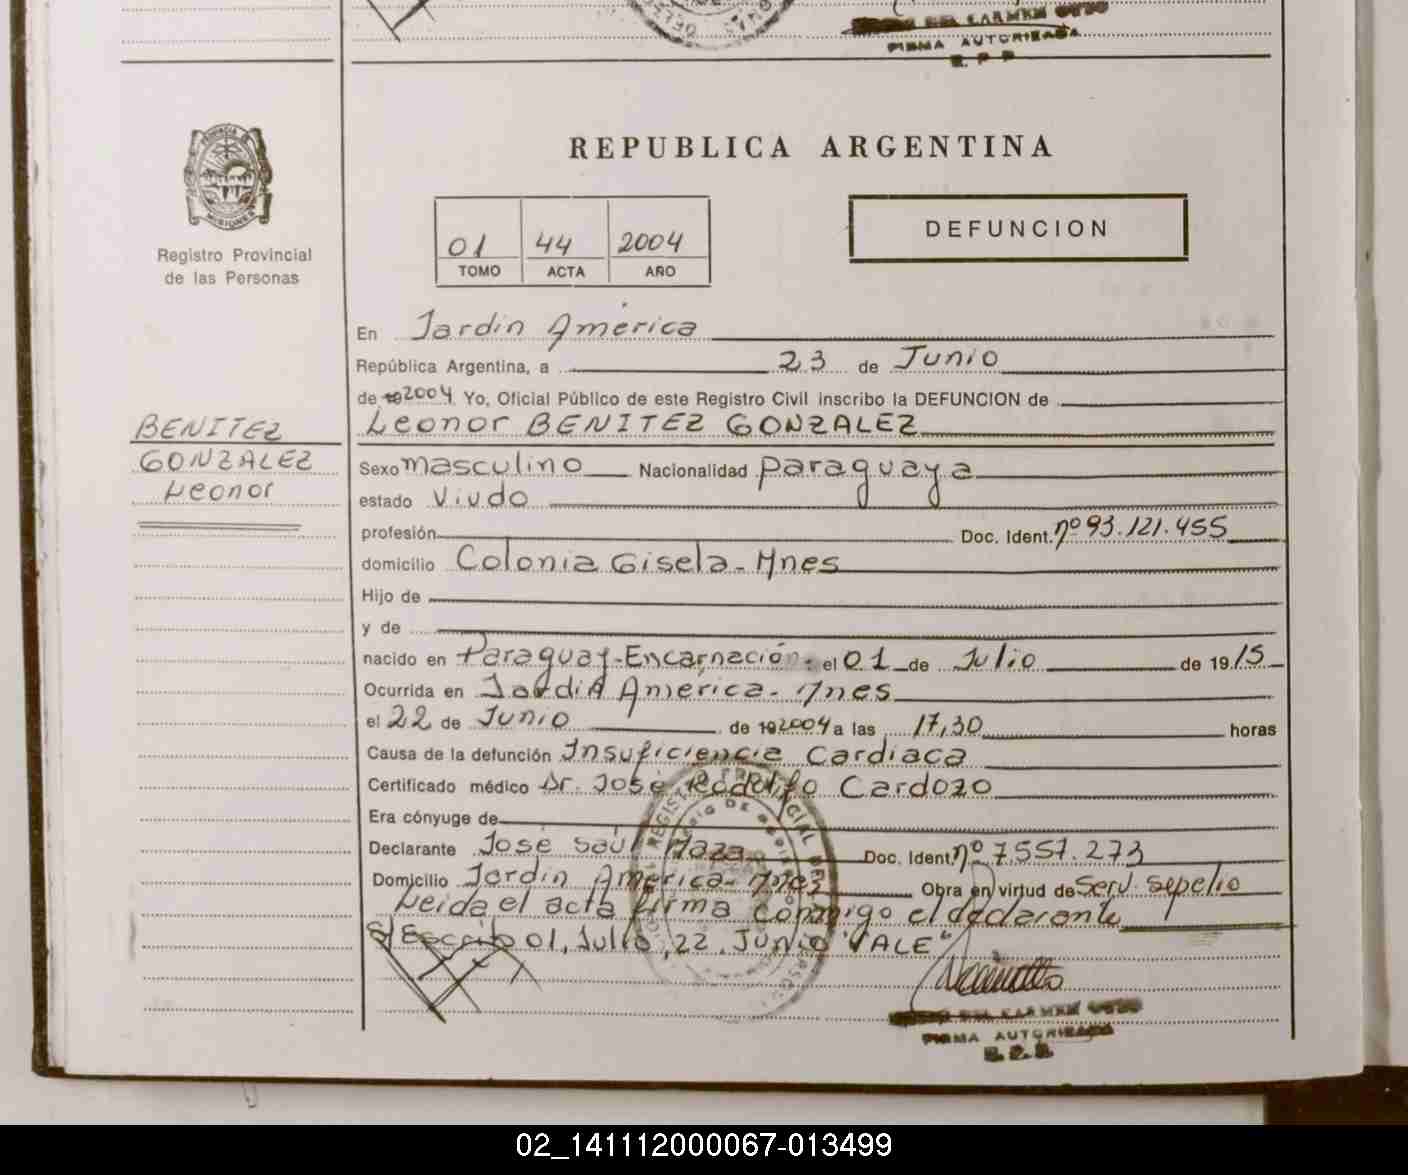 FIRMA AUTORIZADA
R. P. P.
REPUBLICA ARGENTINA
PROVINCIA DE
MISIONES
Registro Provincial
de las Personas
01 44 2004
TOMO ACTA AÑO
DEFUNCION
En Jardin América
República Argentina, a 23 de Junio
de 19 2004 Yo, Oficial Público de este Registro Civil inscribo la DEFUNCION de
Leonor BENITEZ GONZALEZ
BENITEZ
GONZALEZ
Leonor
Sexo masculino Nacionalidad paraguaya
estado Viudo
profesión Doc. Ident. nº 93.121.455
domicilio Colonia Gisela - Mnes
Hijo de
y de
nacido en Paraguay - Encarnación - el 01 de Julio de 19 15
Ocurrida en Jardin América - Mnes
el 22 de Junio de 19 2004 a las 17,30 horas
Causa de la defunción Insuficiencia Cardiaca
Certificado médico Dr. José Rodolfo Cardozo
Era cónyuge de
Declarante José Saúl Maza Doc. Ident. nº 7.557.273
Domicilio Jardin América - Mnes Obra en virtud de Serv. sepelio
Leida el acta firma conmigo el declarante
s/ Escrito 01, Julio, 22, Junio "VALE"
DEL CARMEN
FIRMA AUTORIZADA
02_141112000067-013499